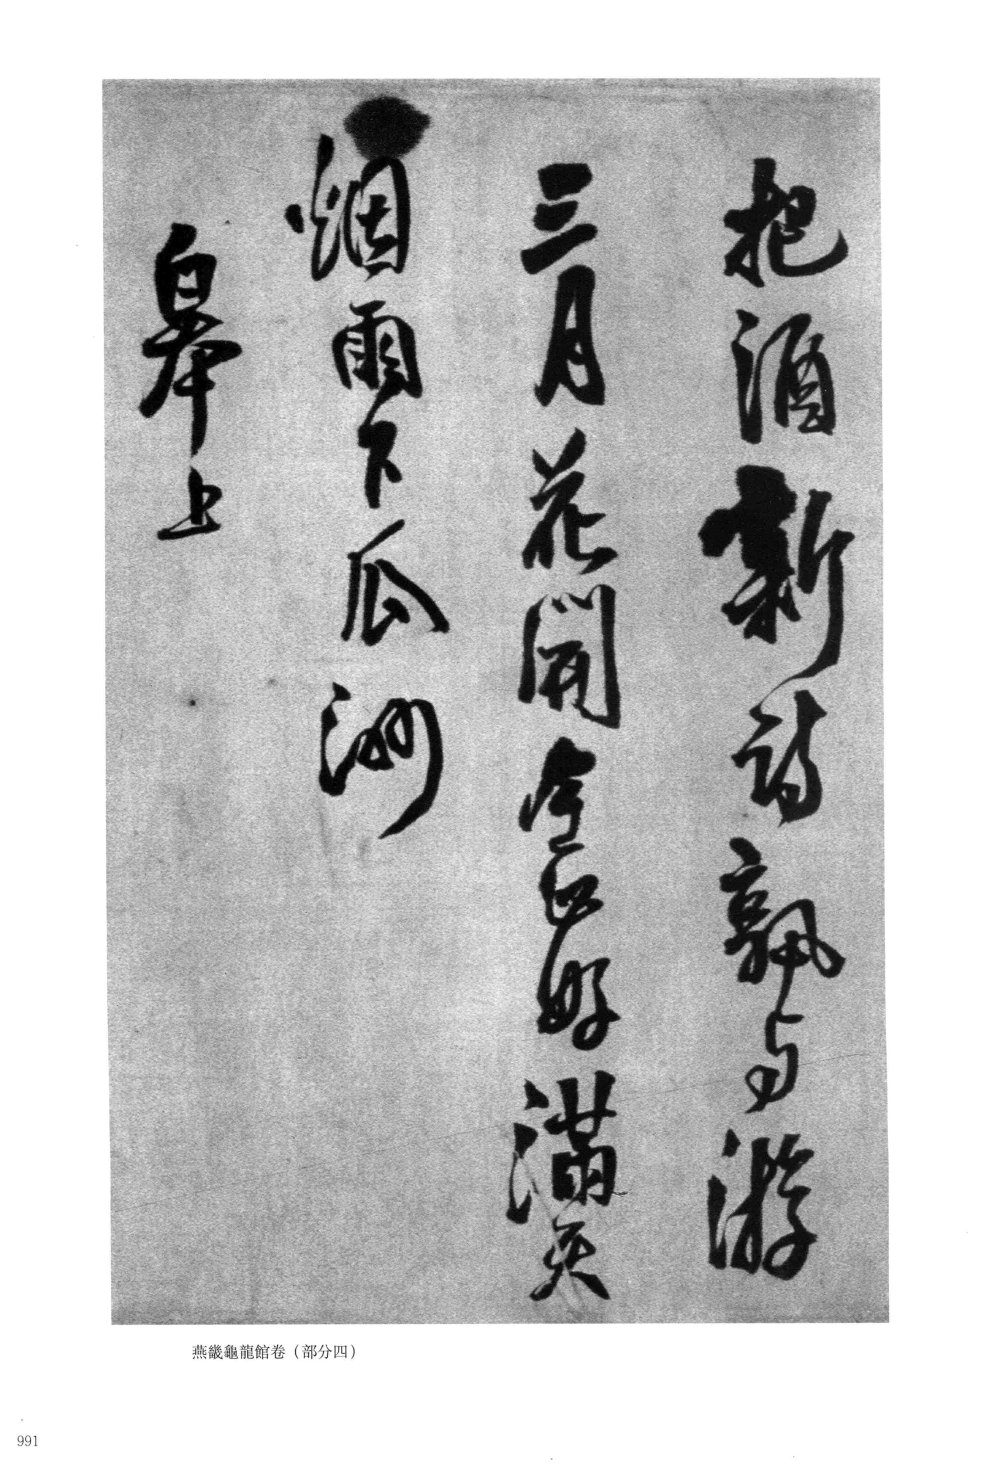 把酒新詩孰与游
三月花開金口好滿天
烟雨下瓜洲
皋上
燕畿龜龍館卷（部分四）
991